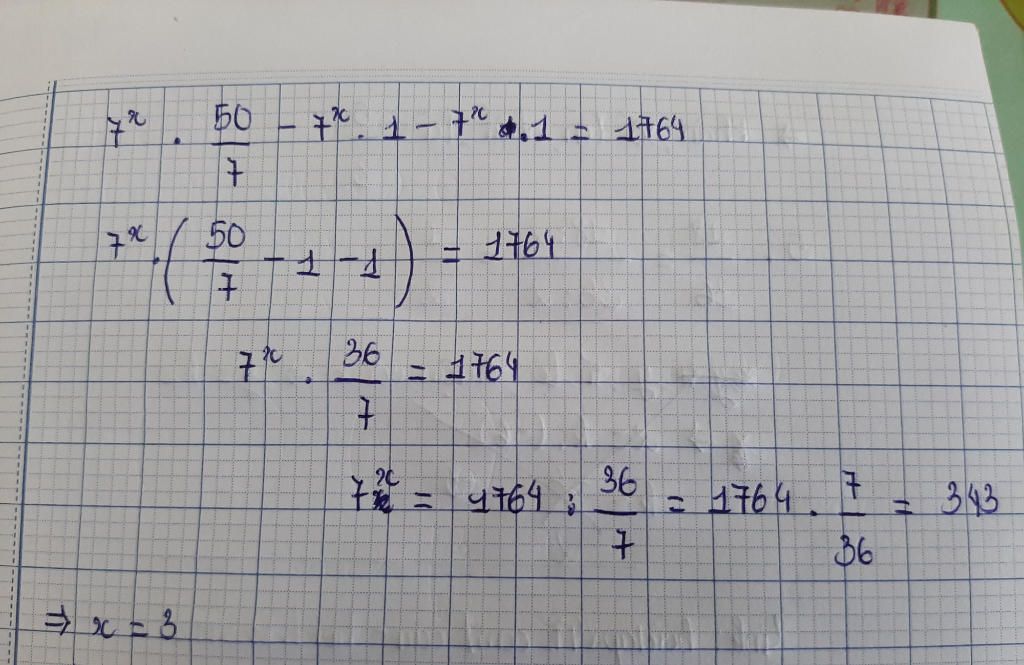 7^x . 50/7 - 7^x . 1 - 7^x . 1 = 1764
7^x . (50/7 - 1 - 1) = 1764
7^x . 36/7 = 1764
7^x = 1764 : 36/7 = 1764 . 7/36 = 343
⇒ x = 3